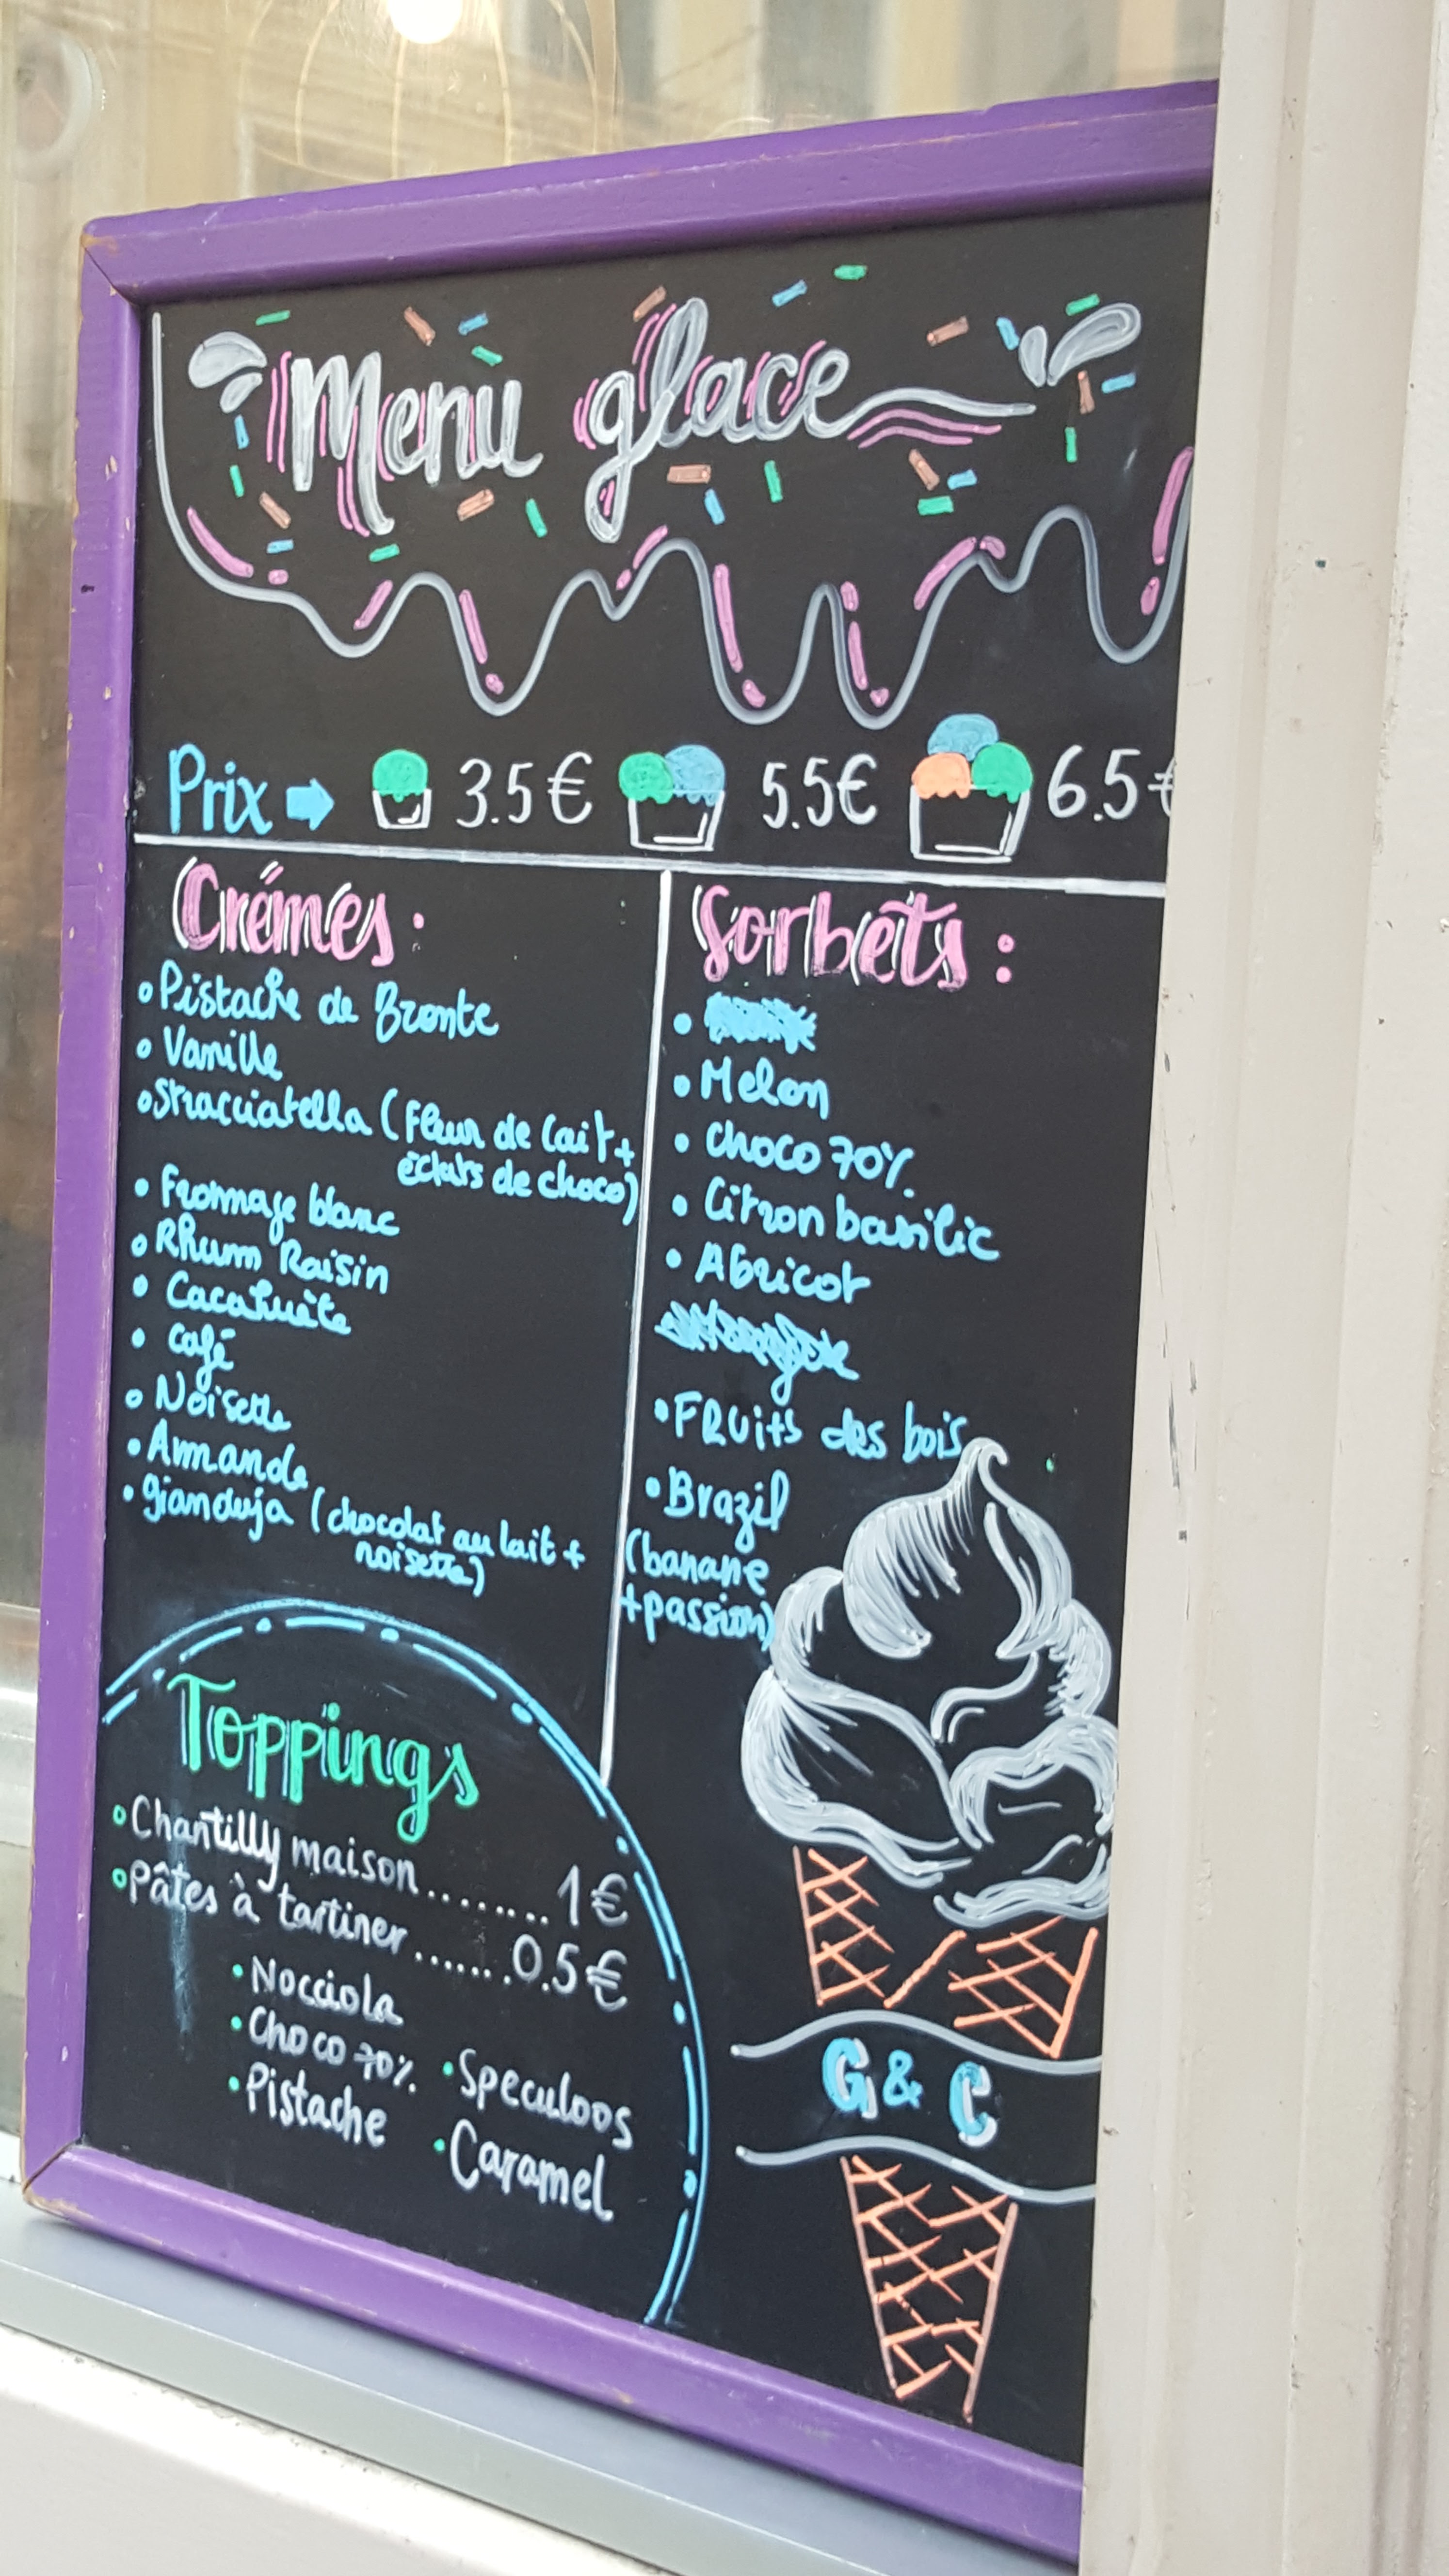 Menu glace
Prix 3.5€ 5.5€ 6.5€
Crémes:
Pistache de Bronte
Vanille
Stracciatella (Fleur de lait +
éclats de choco)
Fromage blanc
Rhum Raisin
Cacahuète
café
Noisette
Amande
gianduja (chocolat au lait +
noisette)
Sorbets:
Melon
choco 70%
Citron basilic
Abricot
FRuits des bois
Brazil
(banane
+passion)
Toppings
Chantilly maison........ 1€
Pâtes à tartiner.......0.5€
Nocciola
Choco 70%
Pistache
Speculoos
Caramel
G & C